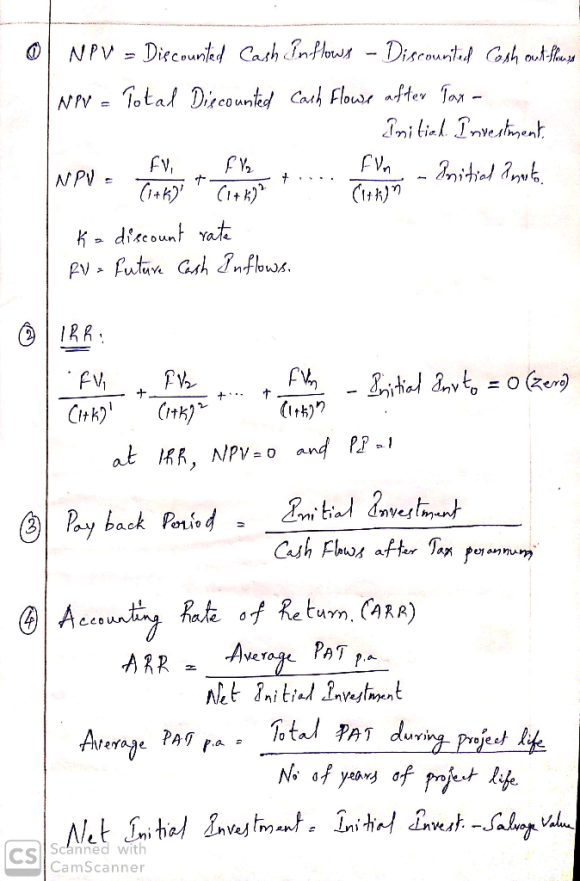 ① NPV = Discounted Cash Inflows – Discounted Cash outflows
NPV = Total Discounted Cash Flows after Tax –
Initial Investment.
NPV = FV₁/(1+K)¹ + FV₂/(1+K)² + .... FVn/(1+K)ⁿ – Initial Invt₀.
K = discount rate
FV = Future Cash Inflows.
② IRR:
FV₁/(1+K)¹ + FV₂/(1+K)² + ... + FVn/(1+K)ⁿ – Initial Invt₀ = 0 (Zero)
at IRR, NPV = 0 and PI = 1
③ Pay back Period = Initial Investment
Cash Flows after Tax perannum
④ Accounting Rate of Return. (ARR)
ARR = Average PAT p.a
Net Initial Investment
Average PAT p.a = Total PAT during project life
No of years of project life
Net Initial Investment = Initial Invest. – Salvage Value
CS Scanned with
CamScanner